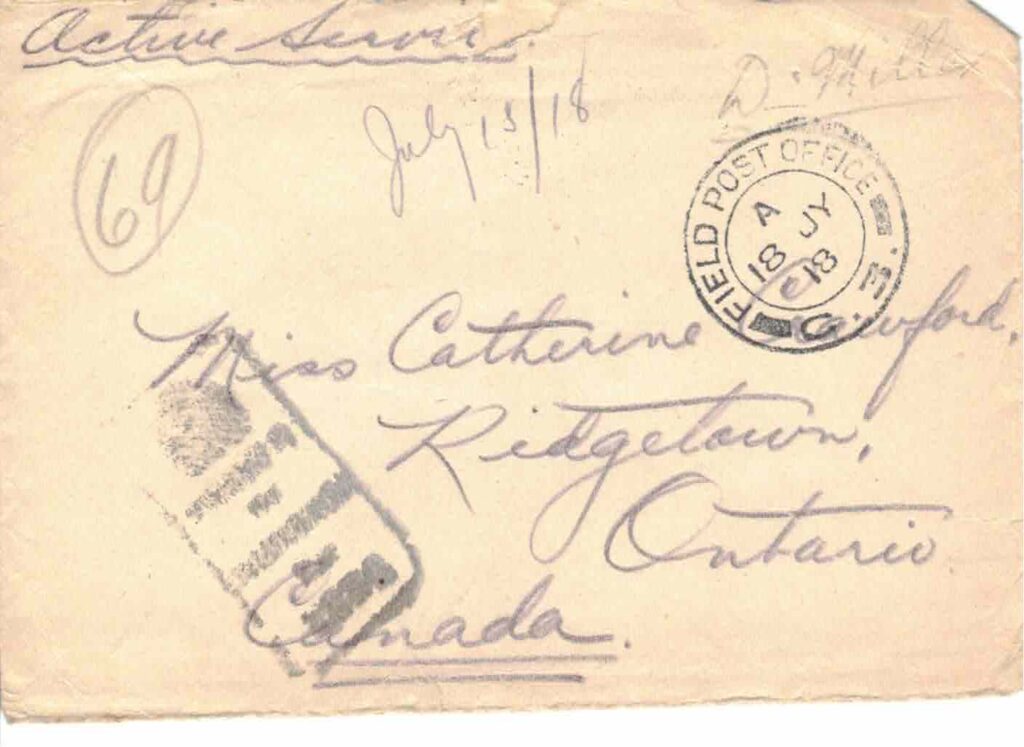 Active Service.
D.
July 13/18
69
FIELD POST OFFICE
A JY
18 18
Miss Catherine Crawford,
Ridgetown,
Ontario
Canada.